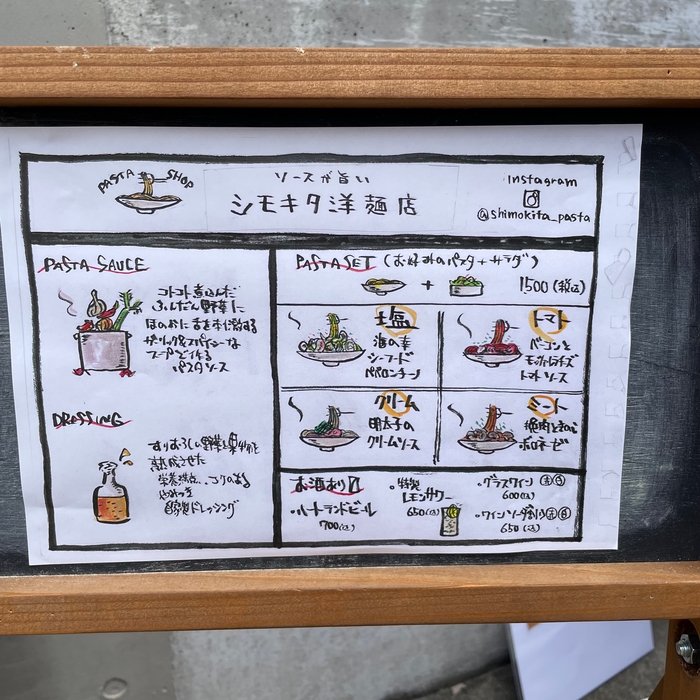 PASTA SHOP
ソースが旨い
シモキタ洋麺店
Instagram
@shimokita_pasta
PASTA SAUCE
コトコト煮込んだ
ふんだん野菜に
ほのおに
ガーリック&スパイシーな
スープで作る
パスタソース
DRESSING
すりおろしい野菜と果物を
熟成させた
栄養満点、コクのある
自家製ドレッシング
PASTA SET (お好みのパスタ+サラダ)
+ 1500 (税込)
塩
海の幸
シーフード
ペペロンチーノ
トマト
ベーコンと
モッツァレラチーズ
トマトソース
クリーム
明太子の
クリームソース
ミート
挽肉ときのこ
ボロネーゼ
お酒あり〼
・ハートランドビール
700(込)
・特製
レモンサワー
650(込)
・グラスワイン 赤 白
600(込)
・ワインソーダ割り 赤 白
650(込)